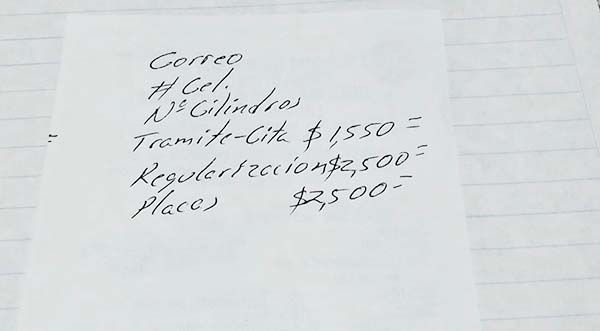 Correo
# Cel.
Nº Cilindros
Tramite-Cita $1,550=
Regularizacion $2,500=
Placas $2,500=